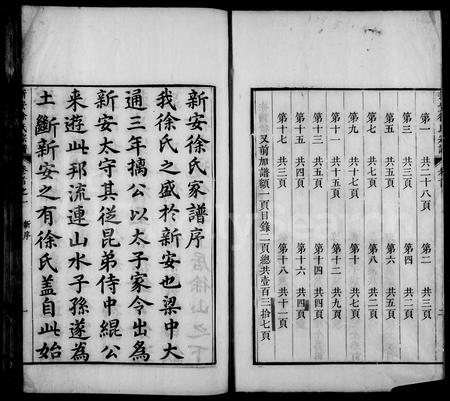 第一　共二十八頁
第二　共三頁
第三　共二頁
第四　共二頁
第五　共五頁
第六　共五頁
第七　共五頁
第八　共二頁
第九　共十七頁
第十　共六頁
第十一　共十五頁
第十二　共九頁
第十三　共一頁
第十四　共四頁
第十五　共四頁
第十六　共四頁
第十七　共三頁
第十八　共十一頁
又前加譜額一頁目錄二頁總共壹百三拾七頁
新安徐氏家譜序
我徐氏之盛於新安也梁中大
通三年摛公以太子家令出為
新安太守其從昆弟侍中緄公
来遊此邦流連山水子孫遂為
土斷新安之有徐氏蓋自此始
新序